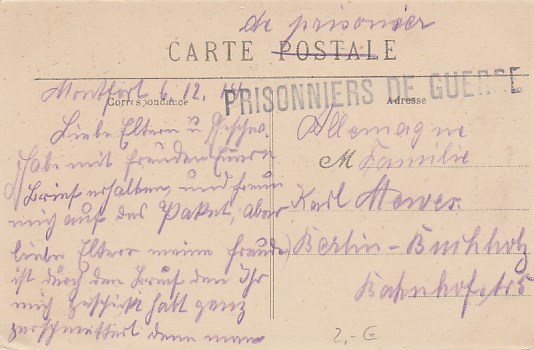 de prisonier
CARTE POSTALE
PRISONNIERS DE GUERRE
Montfort 6. 12. 14
Correspondance
Liebe Eltern u Geschw.
Habe mit Freuden Euern
Brief erhalten und freue
mich auf das Paket, aber
liebe Eltern meine Freude
ist durch den Brief den Ihr
mich geschickt habt ganz
zerschmettert denn man
Adresse
Allemagne
Familie
Karl
Berlin - Buchholz
Bahnhofstr 5
2,- €